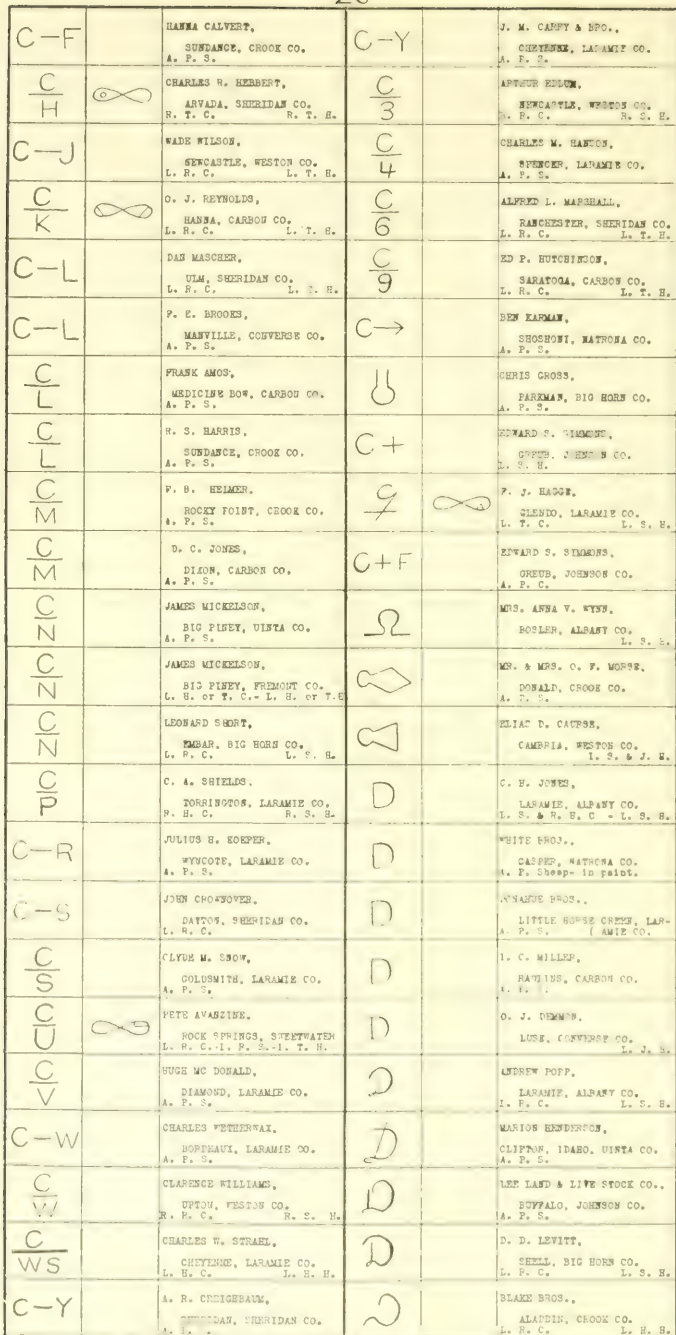 C-F
HANNA CALVERT,
SUNDANCE, CROOK CO.
A. P. S.
C
H
CHARLES R. HERBERT,
ARVADA, SHERIDAN CO.
R. T. C. R. T. H.
C-J
WADE WILSON,
NEWCASTLE, WESTON CO.
L. R. C. L. T. H.
C
K
O. J. REYNOLDS,
HANNA, CARBON CO.
L. R. C. L. T. H.
C-L
DAN MASCHER,
ULM, SHERIDAN CO.
L. R. C.
C-L
F. E. BROOKS,
MANVILLE, CONVERSE CO.
A. P. S.
C
L
FRANK AMOS,
MEDICINE BOW, CARBON CO.
A. P. S.
C
L
R. S. HARRIS,
SUNDANCE, CROOK CO.
A. P. S.
C
M
F. B. HELMER,
ROCKY POINT, CROOK CO.
A. P. S.
C
M
D. C. JONES,
DIXON, CARBON CO.
A. P. S.
C
N
JAMES MICKELSON,
BIG PINEY, UINTA CO.
A. P. S.
C
N
JAMES MICKELSON,
BIG PINEY, FREMONT CO.
L. H. or T. C.- L. H. or T.H
C
N
LEONARD SHORT,
EMBAR, BIG HORN CO.
L. R. C. L. S. H.
C
P
C. A. SHIELDS.
TORRINGTON, LARAMIE CO.
R. H. C. R. S. H.
C-R
JULIUS H. KOEPER,
WYNCOTE, LARAMIE CO.
A. P. S.
C-S
JOHN CROWNOVER,
DAYTON, SHERIDAN CO.
L. R. C.
C
S
CLYDE M. SNOW,
GOLDSMITH, LARAMIE CO.
A. P. S.
C
U
PETE AVANZINE,
ROCK SPRINGS, SWEETWATER
C
V
HUGH MC DONALD,
DIAMOND, LARAMIE CO.
A. P. S.
C-W
CHARLES WETHERWAX,
BORDEAUX, LARAMIE CO.
A. P. S.
C
W
CLARENCE WILLIAMS,
UPTON, WESTON CO.
R. R. C. R. S. H.
C
WS
CHARLES W. STRAHL,
CHEYENNE, LARAMIE CO.
L. H. C. L. H. H.
C-Y
A. R. CREIGHBAUM,
SHERIDAN, SHERIDAN CO.
C-Y
J. M. CAREY & BRO.,
CHEYENNE, LARAMIE CO.
A. P. S.
C
3
ARTHUR
NEWCASTLE, WESTON CO.
R. C. R. S. H.
C
4
CHARLES M. HANTON,
SPENCER, LARAMIE CO.
A. P. S.
C
6
ALFRED L. MARSHALL,
RANCHESTER, SHERIDAN CO.
L. R. C. L. T. H.
C
9
ED P. HUTCHINSON,
SARATOGA, CARBON CO.
L. R. C. L. T. H.
C→
BEN KARMAN,
SHOSHONI, NATRONA CO.
A. P. S.
CHRIS GROSS,
PARKMAN, BIG HORN CO.
A. P. S.
C+
EDWARD S. SIMMONS,
GREUB, JOHNSON CO.
L. S. H.
F. J. HAGGE,
GLENDO, LARAMIE CO.
L. T. C. L. S. H.
C+F
EDWARD S. SIMMONS,
GREUB, JOHNSON CO.
A. P. C.
MRS. ANNA V. WYNN,
BOSLER, ALBANY CO.
L. S. H.
MR. & MRS. O. F. MORSE,
DONALD, CROOK CO.
A. P. S.
ELIAS D. CAUPSE,
CAMBRIA, WESTON CO.
L. S. & J. H.
D
C. H. JONES,
LARAMIE, ALBANY CO.
L. S. & R. H. C - L. S. H.
D
WHITE BROS.,
CASPER, NATRONA CO.
A. P. Sheep- in paint.
D
DONAHUE BROS.,
LITTLE HORSE CREEK, LAR-
A. P. S. ( AMIE CO.
D
I. C. MILLER,
RAWLINS, CARBON CO.
D
O. J. DEMMON,
LUSK, CONVERSE CO.
L. J. H.
ANDREW POPP,
LARAMIE, ALBANY CO.
L. S. H.
D
MARION HENDERSON,
CLIFTON, IDAHO, UINTA CO.
A. P. S.
D
LEE LAND & LIVE STOCK CO.,
BUFFALO, JOHNSON CO.
A. P. S.
D
D. D. LEVITT,
SHELL, BIG HORN CO.
L. R. C. L. S. H.
BLAKE BROS.,
ALADDIN, CROOK CO.
L. R. C. L. H. H.